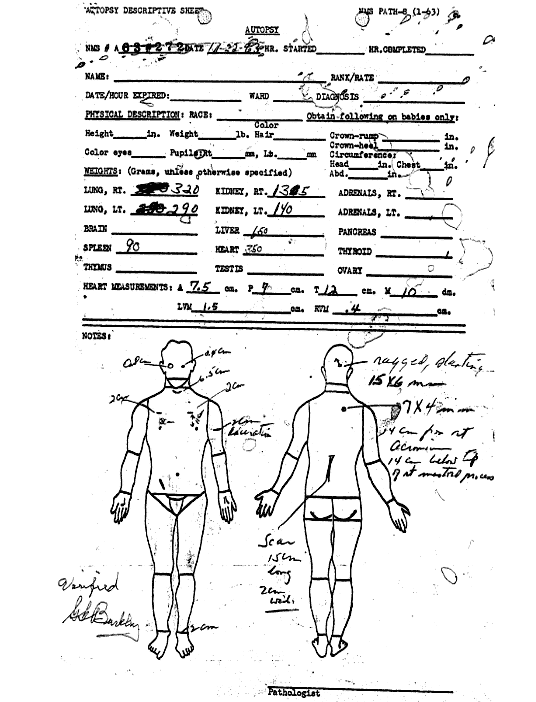 AUTOPSY DESCRIPTIVE SHEET NMS PATH-8 (1-63)
AUTOPSY
NMS # A63#272 DATE 11-22-63 HR. STARTED HR.COMPLETED
NAME: RANK/RATE
DATE/HOUR EXPIRED: WARD DIAGNOSIS
PHYSICAL DESCRIPTION: RACE: Obtain following on babies only:
Color
Height in. Weight lb. Hair Crown-rump in.
Crown-heel in.
Color eyes Pupil:Rt mm, Lb. mm Circumference:
Head in. Chest in.
Abd. in.
WEIGHTS: (Grams, unless otherwise specified)
LUNG, RT. 320 KIDNEY, RT. ADRENALS, RT.
LUNG, LT. 290 KIDNEY, LT. 140 ADRENALS, LT.
BRAIN LIVER PANCREAS
SPLEEN 90 HEART 350 THYROID
THYMUS TESTIS OVARY
HEART MEASUREMENTS: A 7.5 cm. P 7 cm. T 12 cm. M 10 cm.
LVM 1.5 cm. RVM .4 cm.
NOTES:
ragged, slanting
15X6 mm
6.5cm
2cm
2cm
7X4 mm
14 cm from rt
Acromion
14 cm below tip
of rt mastoid process
Scar
15cm
long
2cm
Verified
2cm
Pathologist